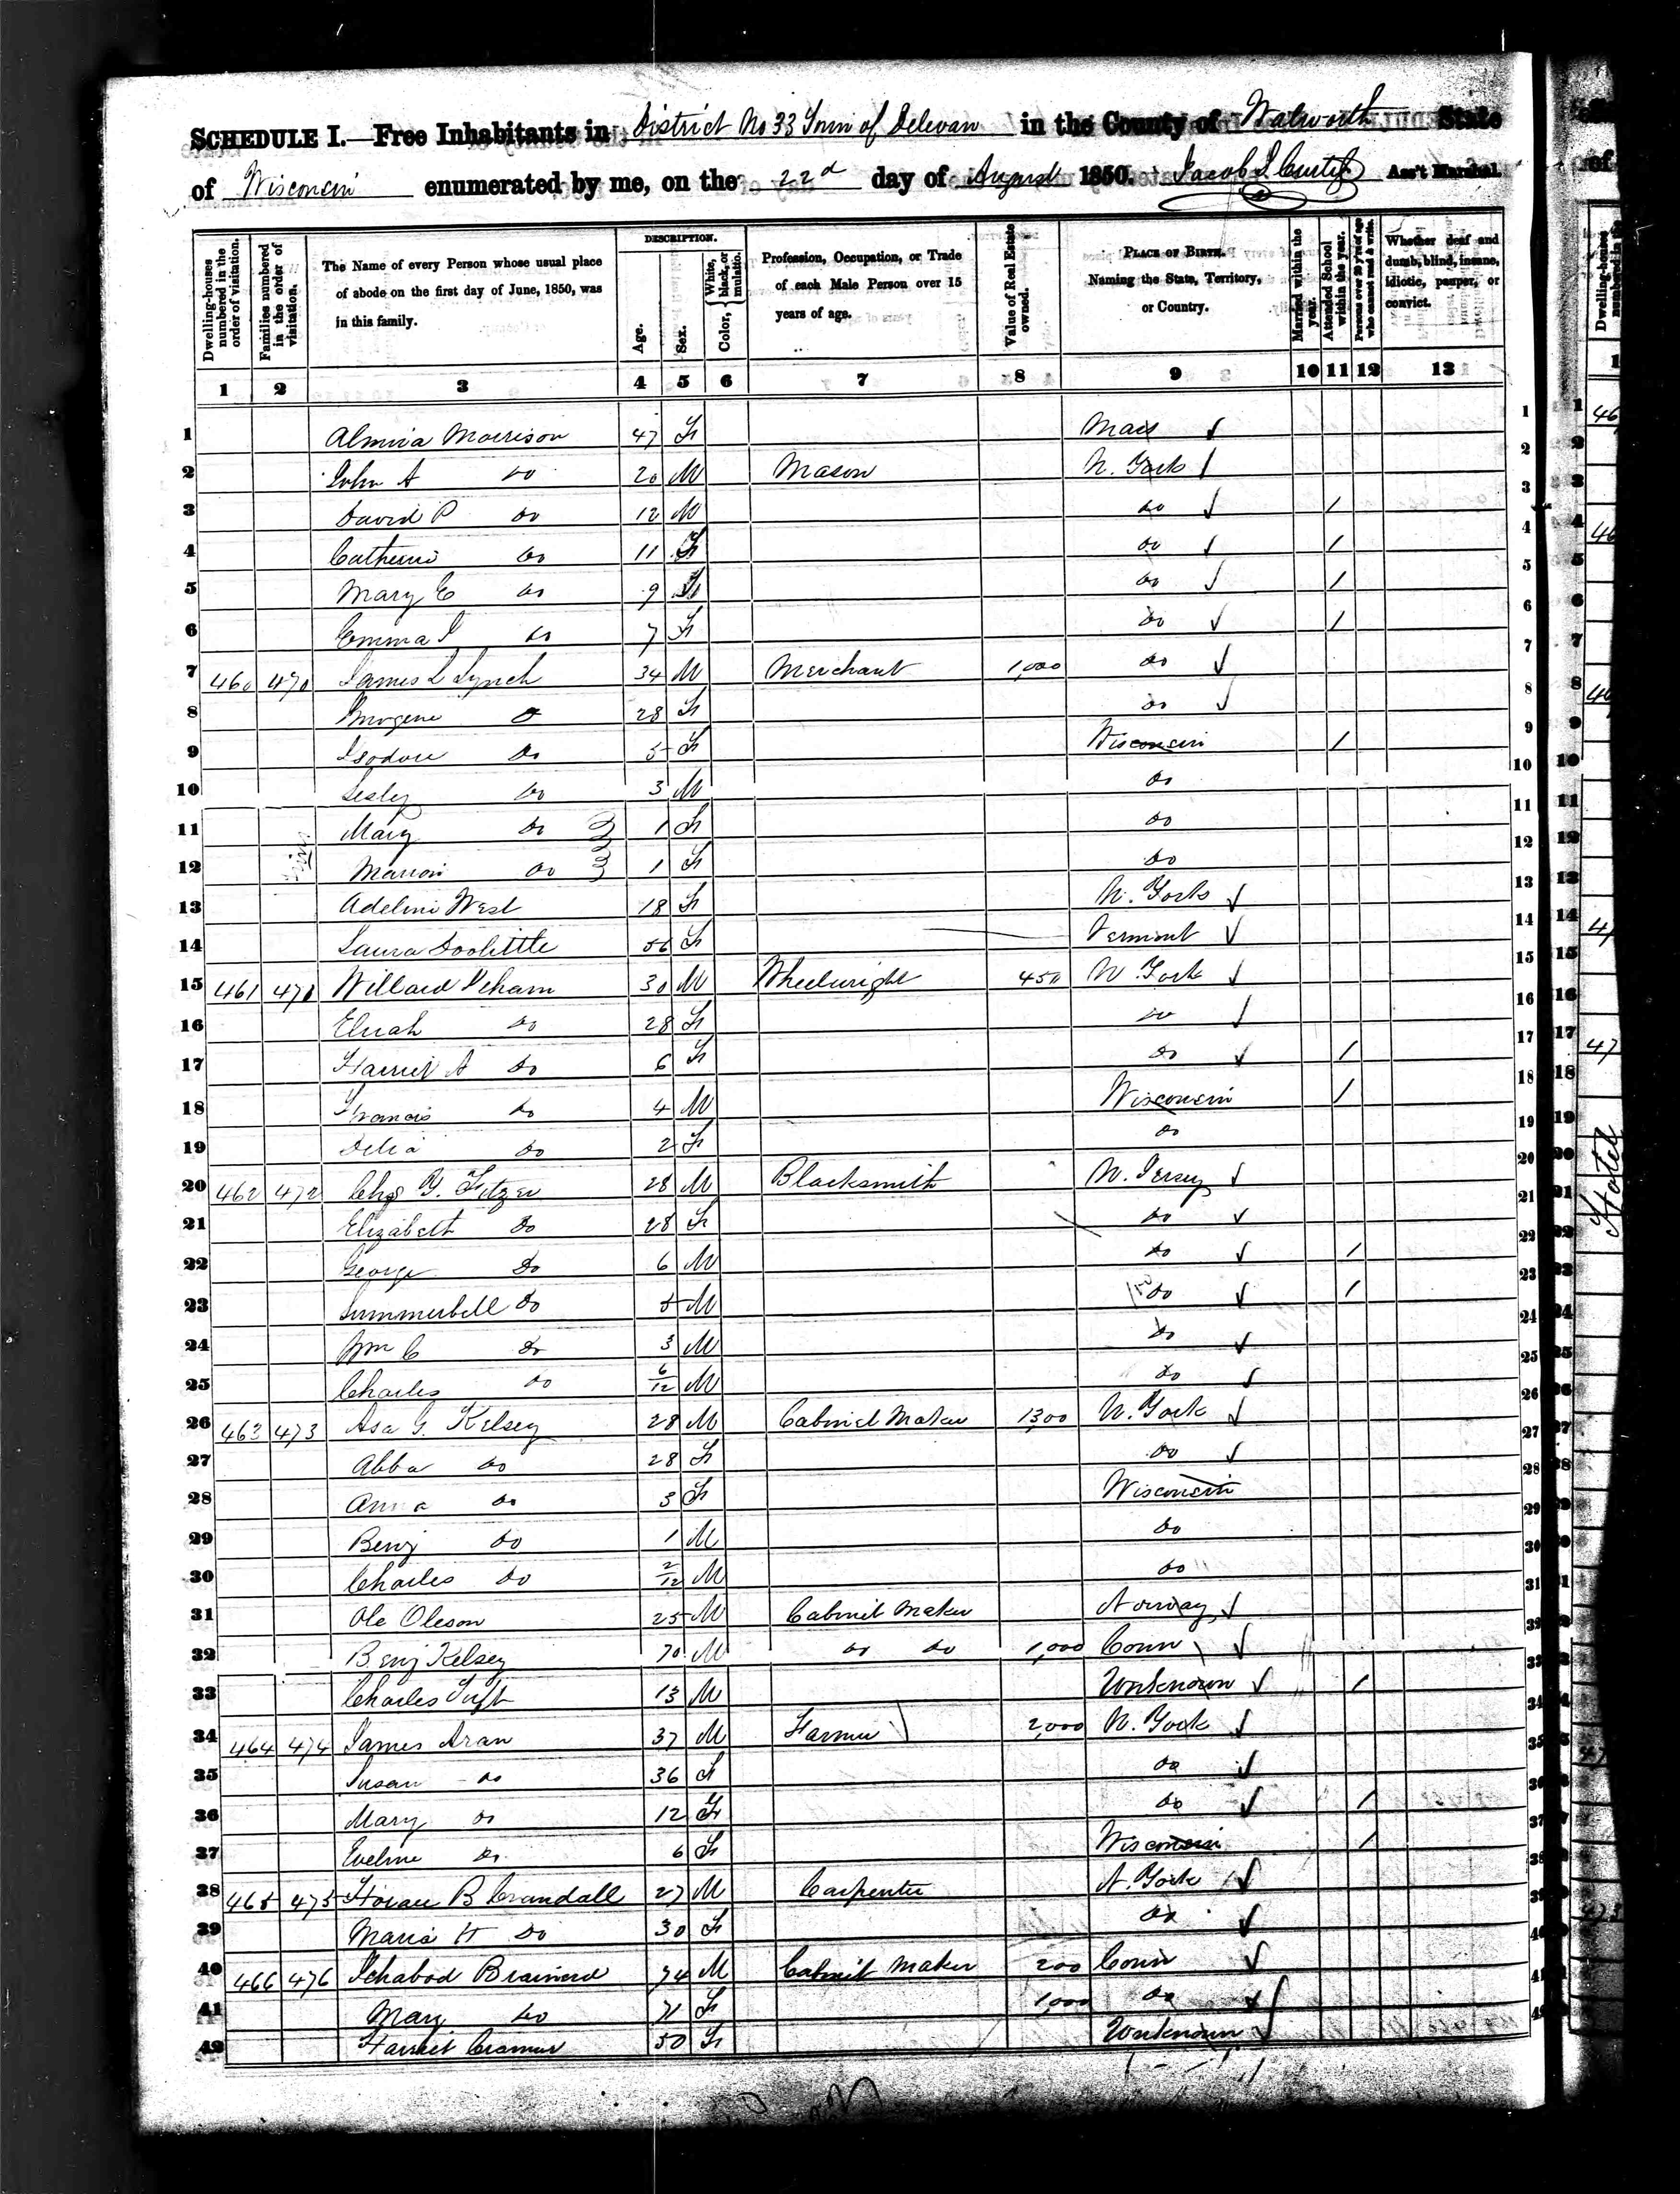 SCHEDULE I.—Free Inhabitants in District No 33 Town of Delevan in the County of Walworth State
of Wisconsin enumerated by me, on the 22d day of August 1850. Jacob L Curtis Ass't Marshal.
Dwelling-houses numbered in the order of visitation.
Families numbered in the order of visitation.
The Name of every Person whose usual place of abode on the first day of June, 1850, was in this family.
DESCRIPTION.
Age.
Sex.
Color, White, black, or mulatto.
Profession, Occupation, or Trade of each Male Person over 15 years of age.
Value of Real Estate owned.
PLACE OF BIRTH. Naming the State, Territory, or Country.
Married within the year.
Attended School within the year.
Persons over 20 y'rs of age who cannot read & write.
Whether deaf and dumb, blind, insane, idiotic, pauper, or convict.
1 2 3 4 5 6 7 8 9 10 11 12 13
1 Almira Morrison 47 F Mass 1
2 John A Do 20 M Mason N. York 2
3 David P Do 12 M Do 1 3
4 Catherine Do 11 F Do 1 4
5 Mary E Do 9 F Do 1 5
6 Emma J Do 7 F Do 1 6
7 460 470 James L Lynch 34 M Merchant 1,000 Do 7
8 Imogene Do 28 F Do 8
9 Isodore Do 5 F Wisconsin 1 9
10 Lesley Do 3 M Do 10
11 Mary Do 1 F Do 11
12 Marion Do 1 F Do 12
13 Adeline West 18 F N. York 13
14 Laura Doolittle 56 F Vermont 14
15 461 471 Willard Isham 30 M Wheelwright 450 N. York 15
16 Do 28 F Do 16
17 Harriet A Do 6 F Do 1 17
18 Francis Do 4 M Wisconsin 1 18
19 Delia Do 2 F Do 19
20 462 472 Chs G. Fitzer 28 M Blacksmith N. Jersey 20
21 Elizabeth Do 28 F Do 21
22 George Do 6 M Do 1 22
23 Summerbell Do 5 M Do 1 23
24 Wm C Do 3 M Do 24
25 Charles Do 6/12 M Do 25
26 463 473 Asa G. Kelsey 28 M Cabinet Maker 1300 N. York 26
27 Abba Do 28 F Do 27
28 Anna Do 3 F Wisconsin 28
29 Benj Do 1 M Do 29
30 Charles Do 2/12 M Do 30
31 Ole Oleson 25 M Cabinet Maker Norway 31
32 Benj Kelsey 70 M Do Do 1,000 Conn 32
33 Charles Tuft 13 M Unknown 1 33
34 464 474 James Aran 37 M Farmer 2,000 N. York 34
35 Susan Do 36 F Do 35
36 Mary Do 12 F Do 1 36
37 Eveline Do 6 F Wisconsin 1 37
38 465 475 Horace B Crandall 27 M Carpenter N. York 38
39 Maria H Do 30 F Do 39
40 466 476 Ichabod Brainerd 74 M Cabinet Maker 200 Conn 40
41 Mary Do 71 F 1,000 Do 41
42 Harriet Cramer 50 F Unknown 42